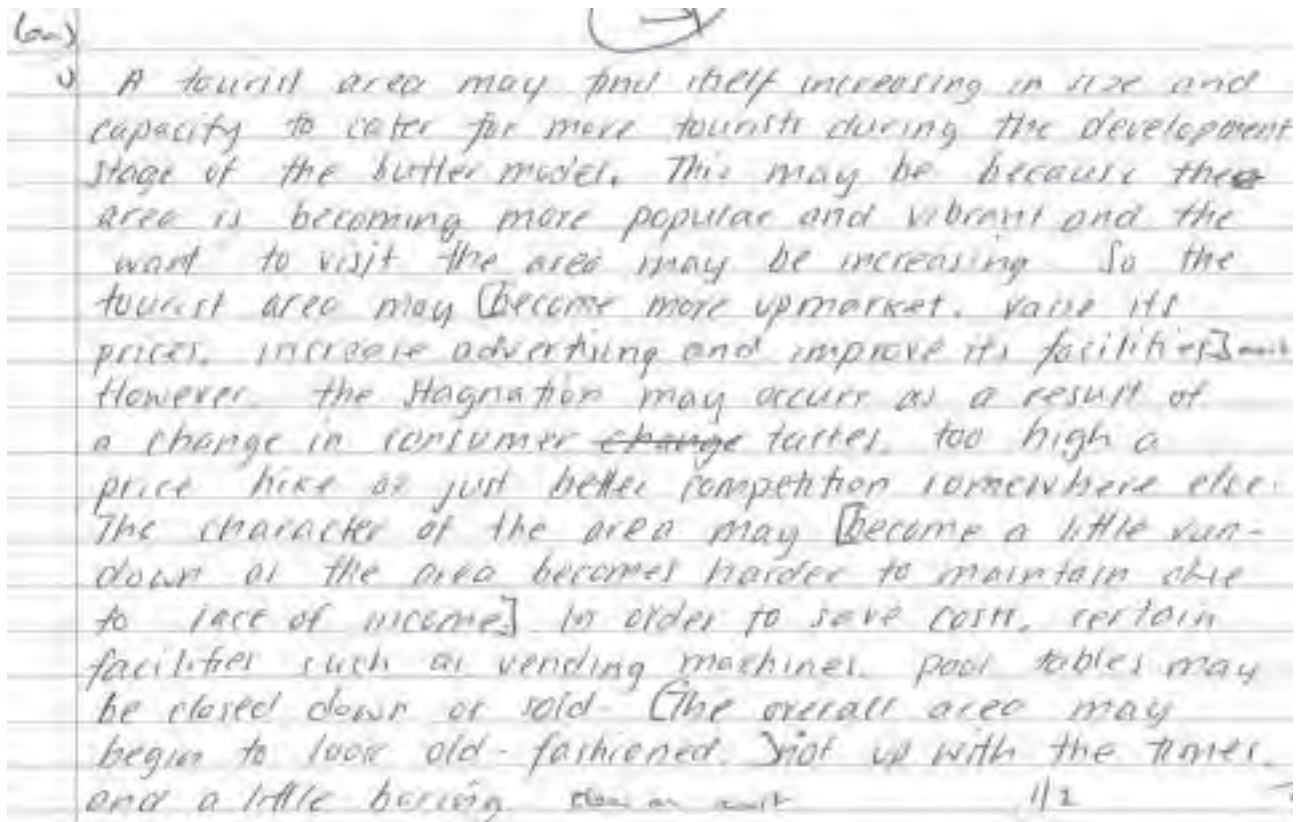 A tourist area may find itself increasing in size and
capacity to cater for more tourists during the development
stage of the buttler model. This may be because the
area is becoming more popular and vibrant and the
want to visit the area may be increasing. So the
tourist area may [become more upmarket, raise its
prices, increase advertising and improve its facilities]
However, the stagnation may occurr as a result of
a change in consumer change tastes, too high a
price hike or just better competition somewhere else.
The character of the area may [become a little run-
down as the area becomes harder to maintain due
to lack of income] In order to save costs, certain
facilities such as vending machines, pool tables may
be closed down or sold. [The overall area may
begin to look old-fashioned,] not up with the times,
and a little boring. 1/2